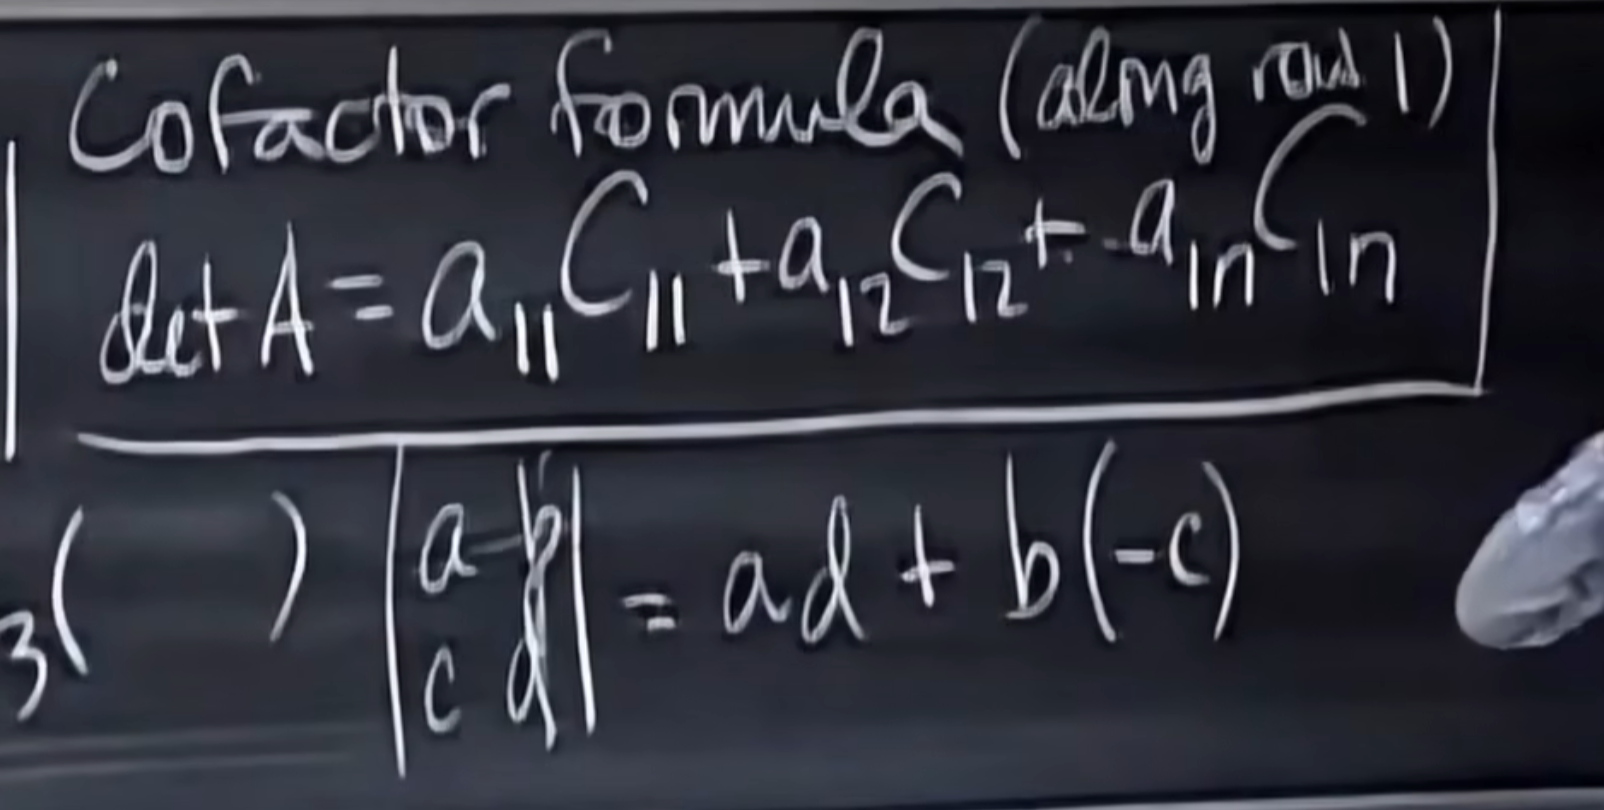 Cofactor formula (along row 1)
det A = a₁₁C₁₁ + a₁₂C₁₂ + .. a₁ₙC₁ₙ
₃(      ) |a b| = ad + b(-c)
|c d|